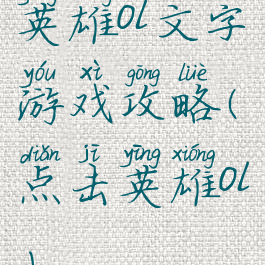 英雄ol文字
yóu xì gōng lüè
游戏攻略(
diǎn jī yīng xióng
点击英雄ol